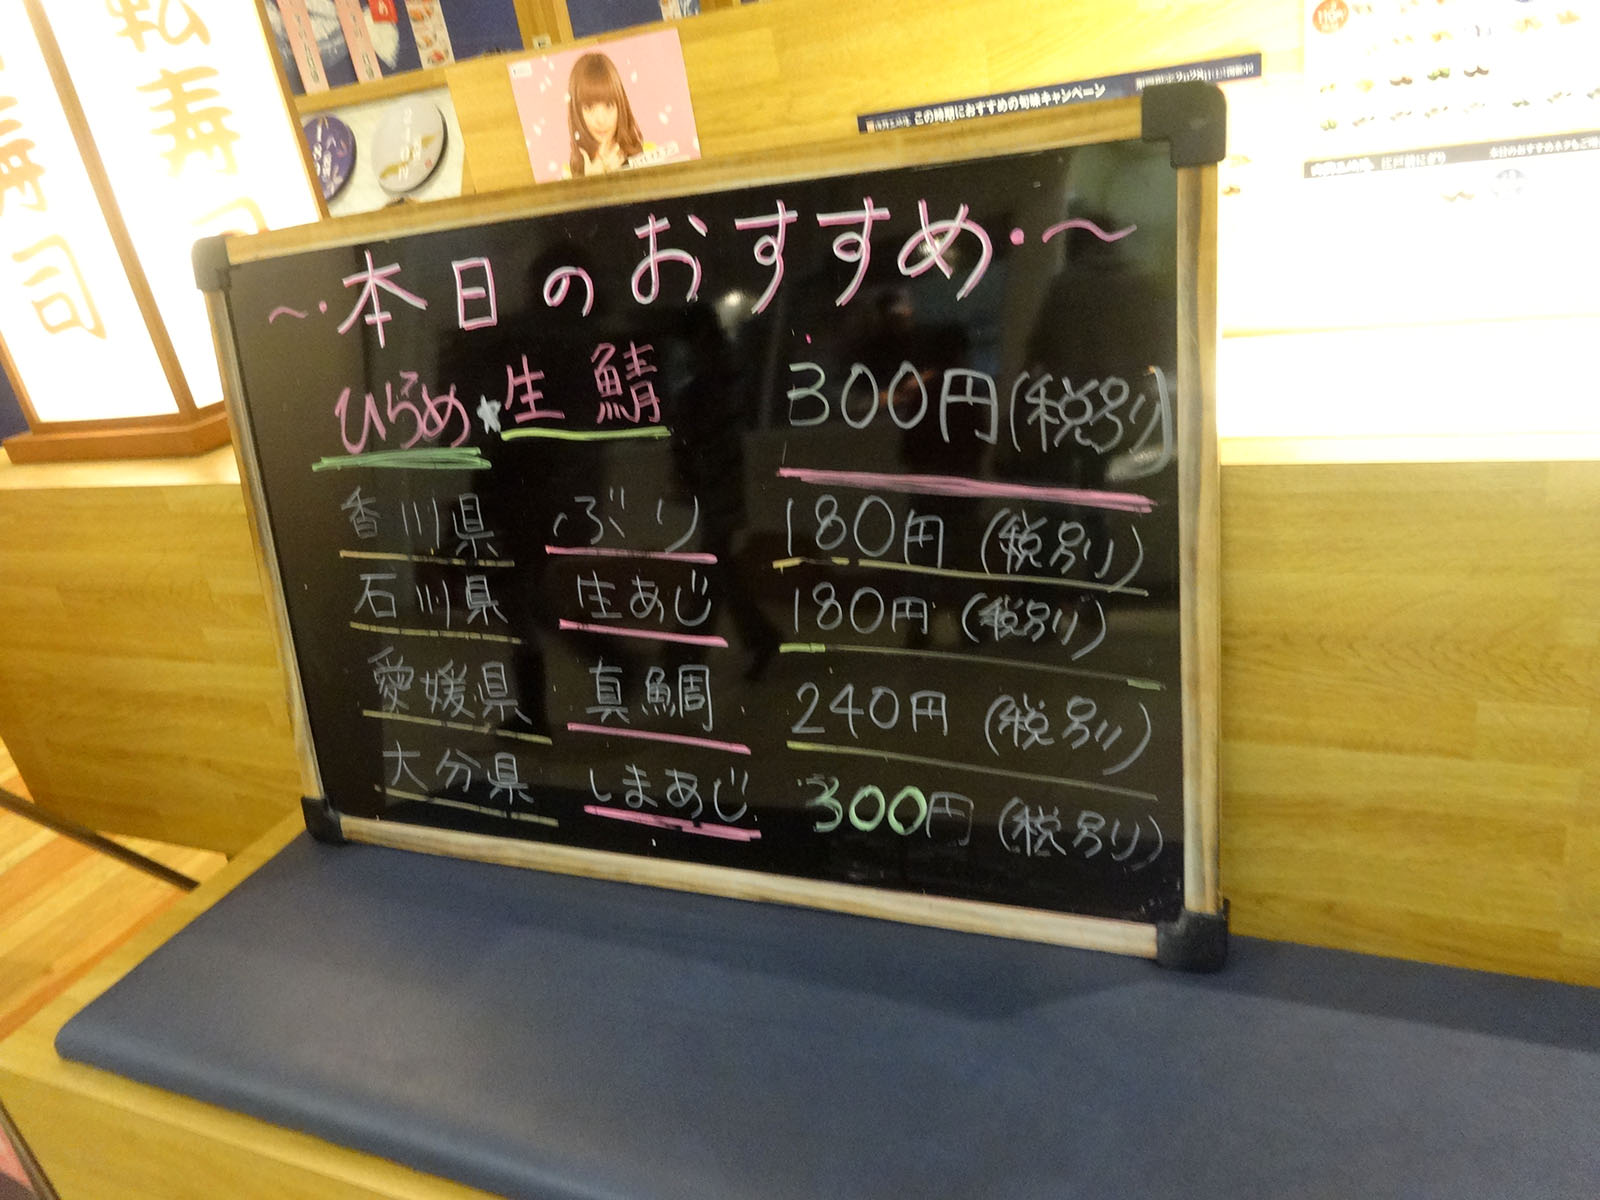 転寿司
寿司
この時期におすすめの旬味キャンペーン
本日のおすすめ
～・本日のおすすめ・～
ひらめ★生鯖 300円(税別)
香川県 ぶり 180円(税別)
石川県 生あじ 180円(税別)
愛媛県 真鯛 240円(税別)
大分県 しまあじ 300円(税別)